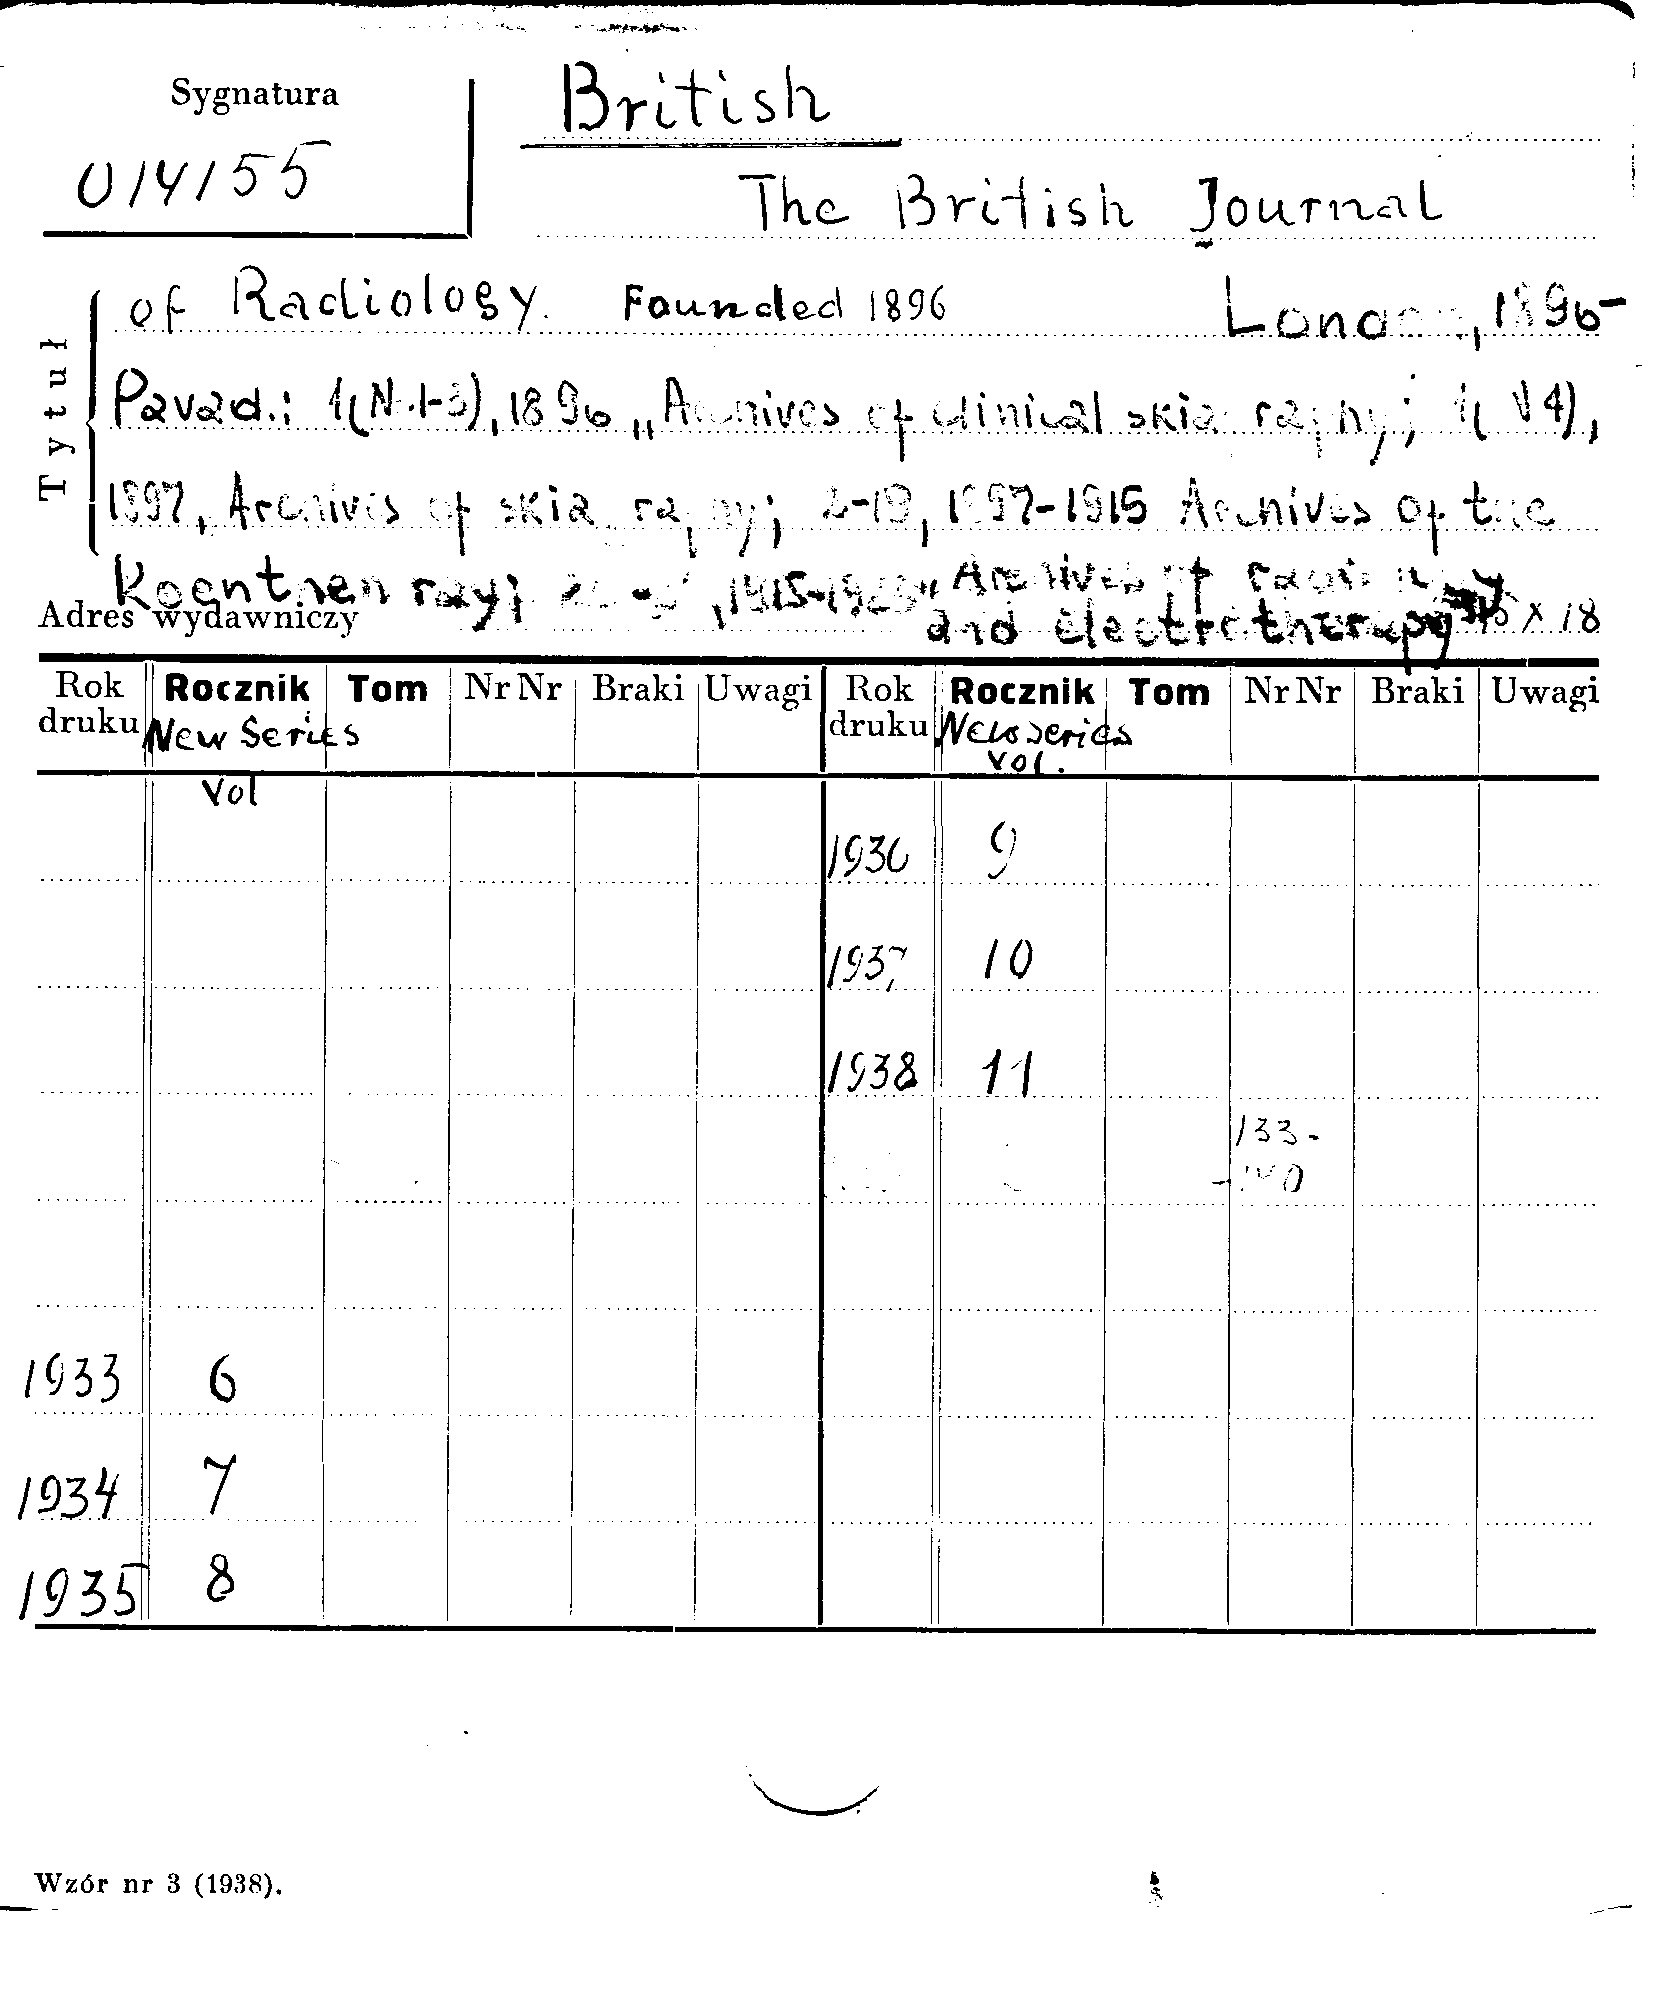 Sygnatura
British
014155
The British Journal
of Radiology. Founded 1896 London, 1896-
Tytuł
Pavad.: 1(N.1-3), 1896 „Archives of clinical skiagraphy; 1(N4),
1897, Archives of skiagraphy; 2-19, 1897-1915 Archives of the
Roentgen ray; 1915- „Archives of radiology
Adres wydawniczy and electrotherapy x 18
Rok druku Rocznik Tom Nr Nr Braki Uwagi Rok druku Rocznik Tom Nr Nr Braki Uwagi
New Series Vol New series vol.
1936 9
1937 10
1938 11
133-
-140
1933 6
1934 7
1935 8
Wzór nr 3 (1938).